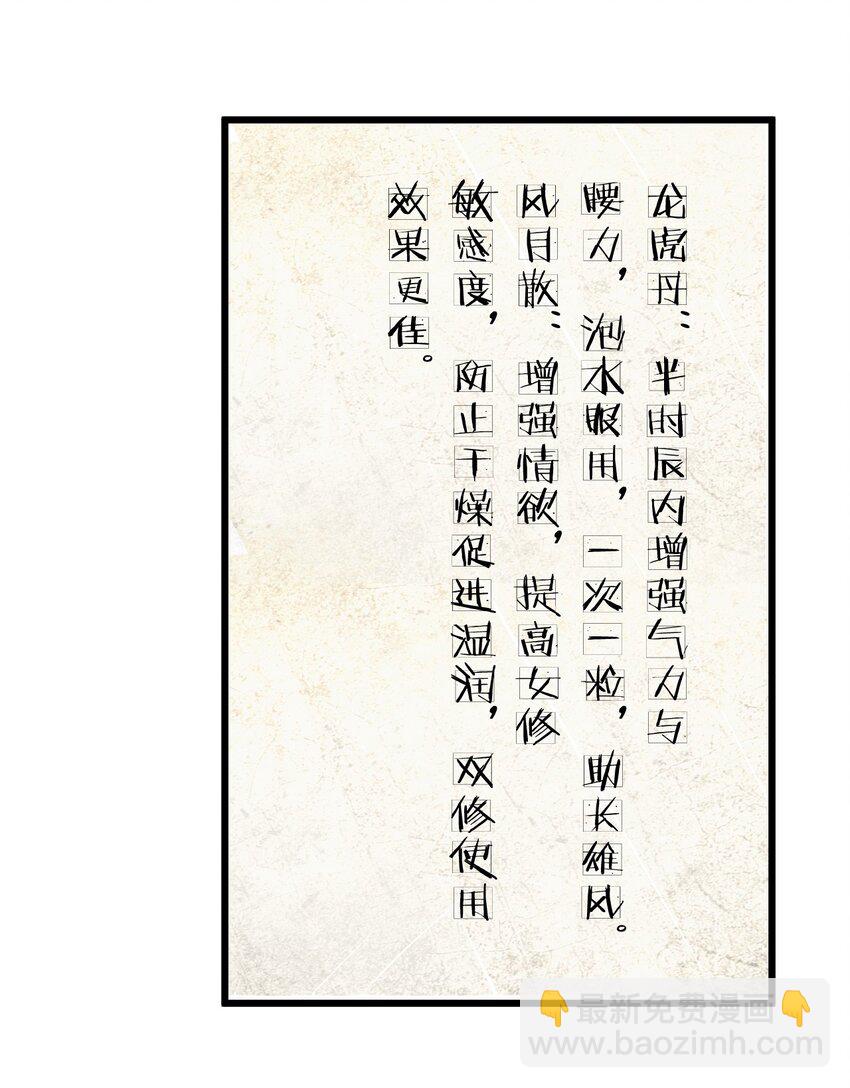 龙虎丹：半时辰内增强气力与
腰力，泡水服用，一次一粒，助长雄风。
风月散：增强情欲，提高女修
敏感度，防止干燥促进温润，双修使用
效果更佳。
最新免费漫画
www.baozimh.com